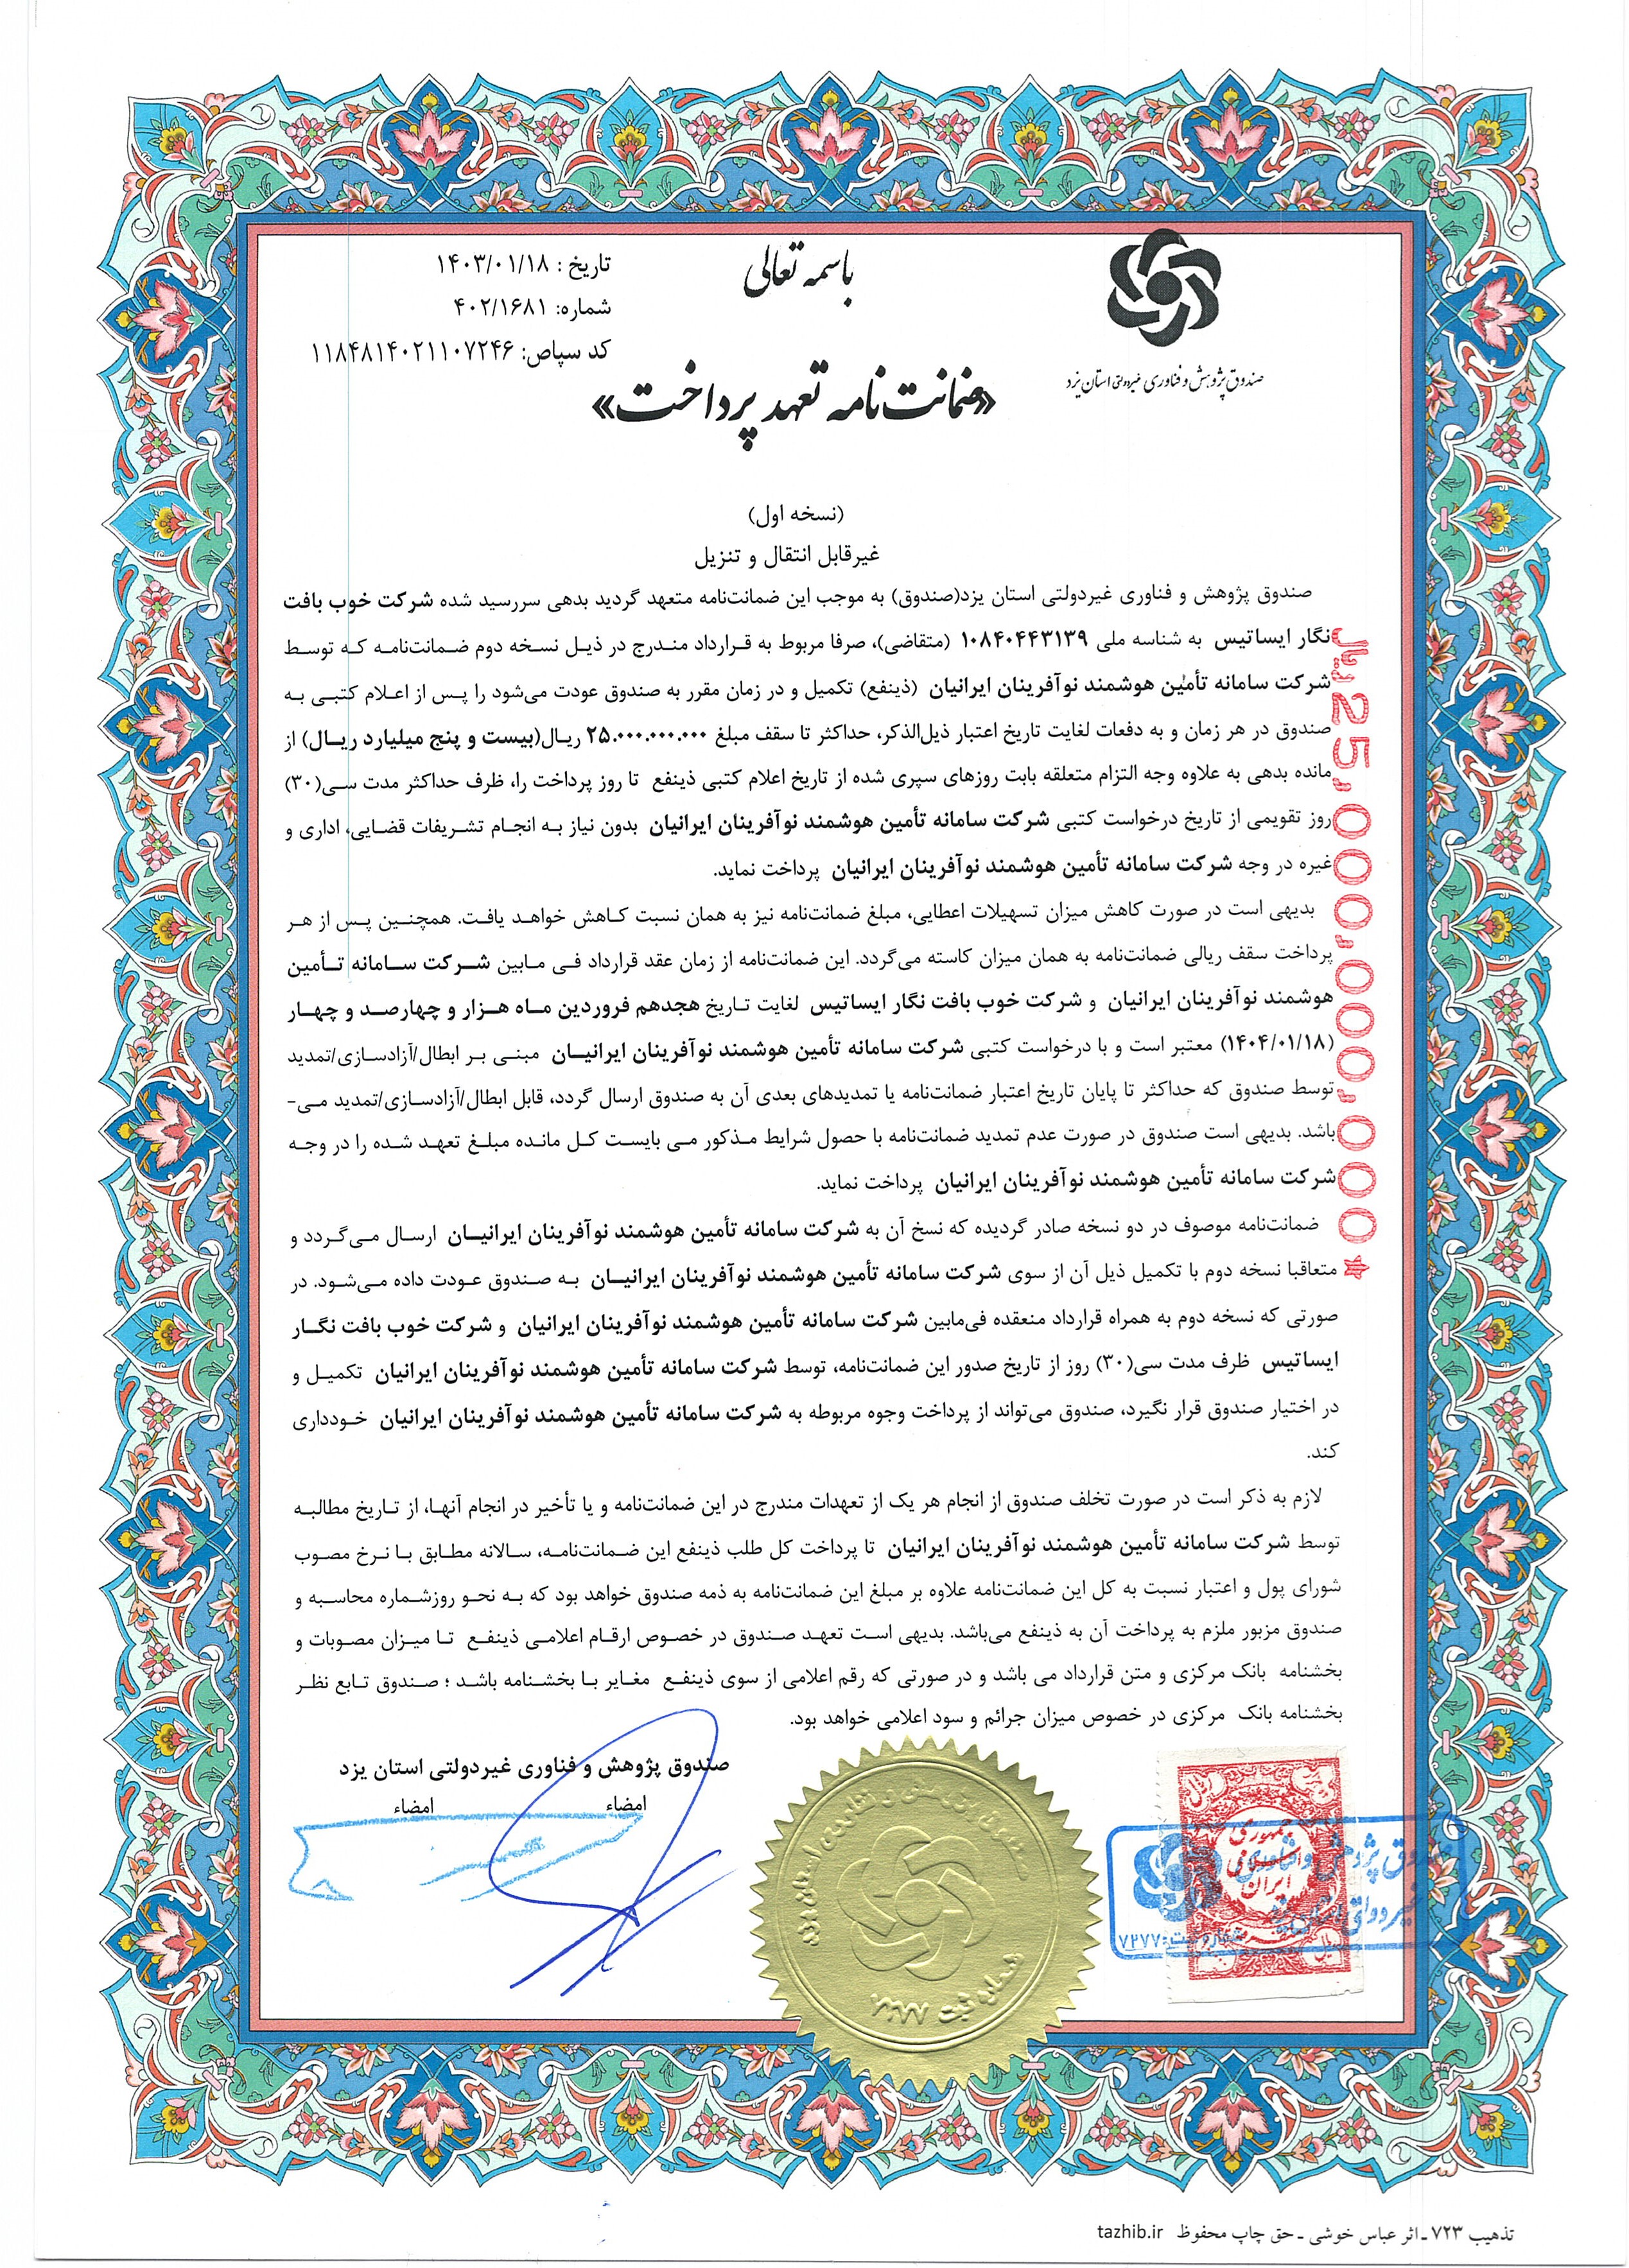 باسمه تعالی
تاریخ : ۱۴۰۳/۰۱/۱۸
شماره: ۴۰۲/۱۶۸۱
کد سپاص: ۱۱۸۴۸۱۴۰۲۱۱۰۷۲۴۶
صندوق پژوهش و فناوری غیردولتی استان یزد
«ضمانت‌نامه تعهد پرداخت»
(نسخه اول)
غیرقابل انتقال و تنزیل
صندوق پژوهش و فناوری غیردولتی استان یزد(صندوق) به موجب این ضمانت‌نامه متعهد گردید بدهی سررسید شده شرکت خوب بافت
نگار ایساتیس به شناسه ملی ۱۰۸۴۰۴۴۳۱۳۹ (متقاضی)، صرفا مربوط به قرارداد مندرج در ذیل نسخه دوم ضمانت‌نامه که توسط
شرکت سامانه تأمین هوشمند نوآفرینان ایرانیان (ذینفع) تکمیل و در زمان مقرر به صندوق عودت می‌شود را پس از اعلام کتبی به
صندوق در هر زمان و به دفعات لغایت تاریخ اعتبار ذیل‌الذکر، حداکثر تا سقف مبلغ ۲۵.۰۰۰.۰۰۰.۰۰۰ ریال(بیست و پنج میلیارد ریال) از
مانده بدهی به علاوه وجه التزام متعلقه بابت روزهای سپری شده از تاریخ اعلام کتبی ذینفع تا روز پرداخت را، ظرف حداکثر مدت سی(۳۰)
روز تقویمی از تاریخ درخواست کتبی شرکت سامانه تأمین هوشمند نوآفرینان ایرانیان بدون نیاز به انجام تشریفات قضایی، اداری و
غیره در وجه شرکت سامانه تأمین هوشمند نوآفرینان ایرانیان پرداخت نماید.
بدیهی است در صورت کاهش میزان تسهیلات اعطایی، مبلغ ضمانت‌نامه نیز به همان نسبت کاهش خواهد یافت. همچنین پس از هر
پرداخت سقف ریالی ضمانت‌نامه به همان میزان کاسته می‌گردد. این ضمانت‌نامه از زمان عقد قرارداد فی مابین شرکت سامانه تأمین
هوشمند نوآفرینان ایرانیان و شرکت خوب بافت نگار ایساتیس لغایت تاریخ هجدهم فروردین ماه هزار و چهارصد و چهار
(۱۴۰۴/۰۱/۱۸) معتبر است و با درخواست کتبی شرکت سامانه تأمین هوشمند نوآفرینان ایرانیان مبنی بر ابطال/آزادسازی/تمدید
توسط صندوق که حداکثر تا پایان تاریخ اعتبار ضمانت‌نامه یا تمدیدهای بعدی آن به صندوق ارسال گردد، قابل ابطال/آزادسازی/تمدید می-
باشد. بدیهی است صندوق در صورت عدم تمدید ضمانت‌نامه با حصول شرایط مذکور می بایست کل مانده مبلغ تعهد شده را در وجه
شرکت سامانه تأمین هوشمند نوآفرینان ایرانیان پرداخت نماید.
ضمانت‌نامه موصوف در دو نسخه صادر گردیده که نسخ آن به شرکت سامانه تأمین هوشمند نوآفرینان ایرانیان ارسال می‌گردد و
متعاقبا نسخه دوم با تکمیل ذیل آن از سوی شرکت سامانه تأمین هوشمند نوآفرینان ایرانیان به صندوق عودت داده می‌شود. در
صورتی که نسخه دوم به همراه قرارداد منعقده فی‌مابین شرکت سامانه تأمین هوشمند نوآفرینان ایرانیان و شرکت خوب بافت نگار
ایساتیس ظرف مدت سی(۳۰) روز از تاریخ صدور این ضمانت‌نامه، توسط شرکت سامانه تأمین هوشمند نوآفرینان ایرانیان تکمیل و
در اختیار صندوق قرار نگیرد، صندوق می‌تواند از پرداخت وجوه مربوطه به شرکت سامانه تأمین هوشمند نوآفرینان ایرانیان خودداری
کند.
لازم به ذکر است در صورت تخلف صندوق از انجام هر یک از تعهدات مندرج در این ضمانت‌نامه و یا تأخیر در انجام آنها، از تاریخ مطالبه
توسط شرکت سامانه تأمین هوشمند نوآفرینان ایرانیان تا پرداخت کل طلب ذینفع این ضمانت‌نامه، سالانه مطابق با نرخ مصوب
شورای پول و اعتبار نسبت به کل این ضمانت‌نامه علاوه بر مبلغ این ضمانت‌نامه به ذمه صندوق خواهد بود که به نحو روزشماره محاسبه و
صندوق مزبور ملزم به پرداخت آن به ذینفع می‌باشد. بدیهی است تعهد صندوق در خصوص ارقام اعلامی ذینفع تا میزان مصوبات و
بخشنامه بانک مرکزی و متن قرارداد می باشد و در صورتی که رقم اعلامی از سوی ذینفع مغایر با بخشنامه باشد ؛ صندوق تابع نظر
بخشنامه بانک مرکزی در خصوص میزان جرائم و سود اعلامی خواهد بود.
ریال 25,000,000,000*
صندوق پژوهش و فناوری غیردولتی استان یزد
امضاء امضاء
شماره ثبت ۷۲۷۷
جمهوری
اسلامی
ایران
صندوق پژوهش و فناوری
غیردولتی استان یزد
شماره ثبت: ۷۲۷۷
تذهیب ۷۲۳ ـ اثر عباس خوشی ـ حق چاپ محفوظ tazhib.ir